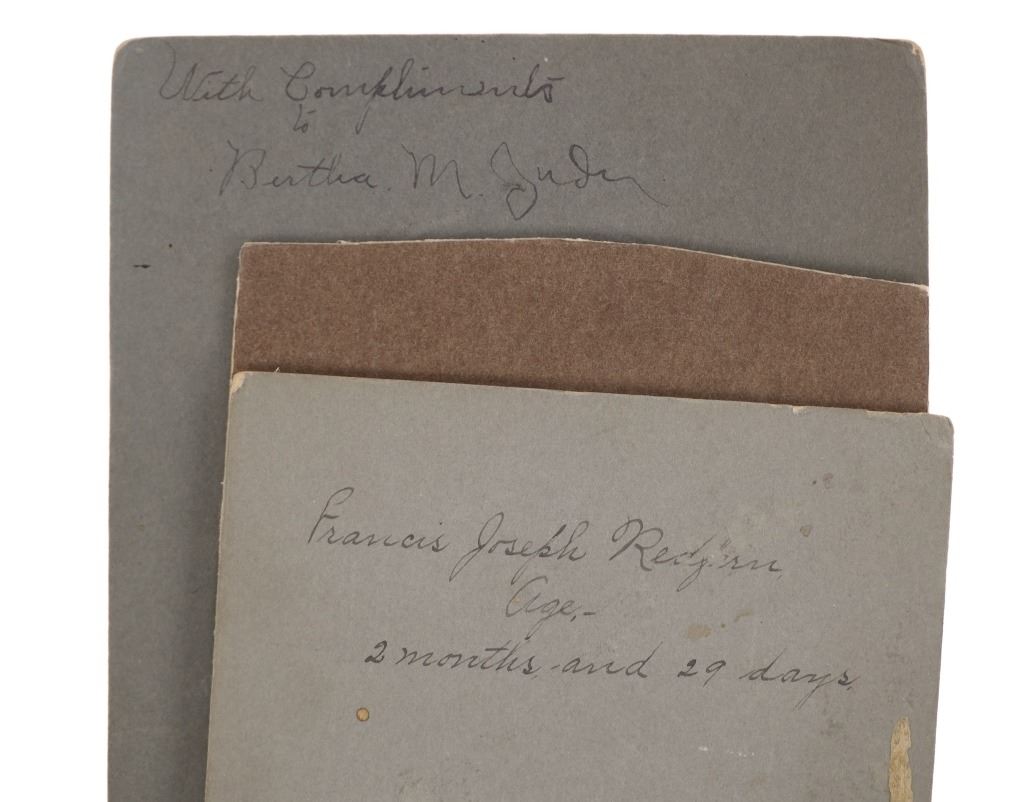 With Compliments
to
Bertha. M.
Francis Joseph
Age,-
2 months, and 29 days.